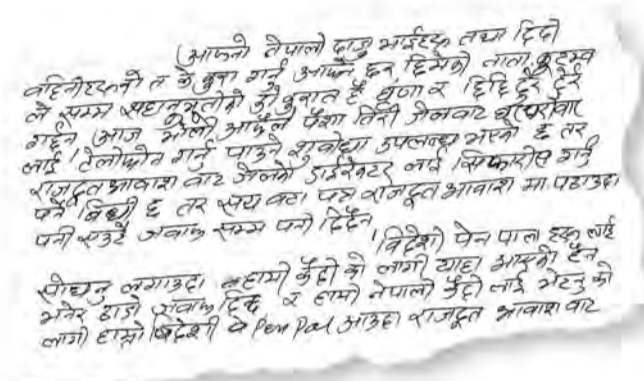 (आफ्नो नेपाली दाजु भाईहरू तथा दिदी
वहिनीहरूको त के कुरा गर्नु आफ्नै हर हिसको नाता कुटुम्ब
ले सम्म सहानुभूतीको कुरात है घृणा र छिछि दुर दुर
गर्छन् आज भोली आफुले पैशा तिरी जेलवाट शुक्रवार
लाई टेलोफोन गर्नु पाउने शुवीधा उपलब्ध भएको छ तर
राजदूत आवाश वाट जेलको डाईरेक्टर लाई सिफारीस गर्नु
पर्ने विधी छ तर सय वटा पत्र राजदूत आवाश मा पठाउदा
पनी एउटै जवाफ सम्म पनी दिदैन
विदेशी पेन पाल हरू लाई
सोधनु लगाउदा हामी कैदी को लागी याहा आएको हैन
भनेर ठाडो जवाफ दिन्छ र हामी नेपाली कैदी लाई भेटनु को
लागी हाम्रो विदेशी Pen Pal आउदा राजदूत आवाश वाट